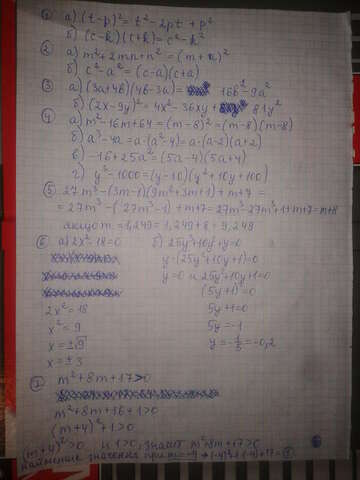 ① а) (t-p)² = t² - 2pt + p²
б) (c-k)(c+k) = c² - k²
② а) m² + 2mn + n² = (m+n)²
б) c² - a² = (c-a)(c+a)
③ а) (3a+4b)(4b-3a) = 16b² - 9a²
б) (2x-9y)² = 4x² - 36xy + 81y²
④ а) m² - 16m + 64 = (m-8)² = (m-8)(m-8)
б) a³ - 4a = a·(a²-4) = a·(a-2)(a+2)
в) -16 + 25a² = (5a-4)(5a+4)
г) y³ - 1000 = (y-10)(y²+10y+100)
⑤ 27m³ - (3m-1)(9m²+3m+1) + m+7 =
= 27m³ - (27m³-1) + m+7 = 27m³-27m³+1+m+7 = m+8
якщо m = 1,249 = 1,249+8 = 9,249
⑥ а) 2x²-18=0 б) 25y³+10y²+y=0
y·(25y²+10y+1)=0
y=0 и 25y²+10y+1=0
(5y+1)²=0
2x² = 18 5y+1=0
x² = 9 5y=-1
x = ±√9 y = -1/5 = -0,2
x = ±3
⑦ m²+8m+17>0
m²+8m+16+1>0
(m+4)²+1>0
(m+4)²>0 и 1>0, значит m²+8m+17>0
наименьшее значения при m=-4